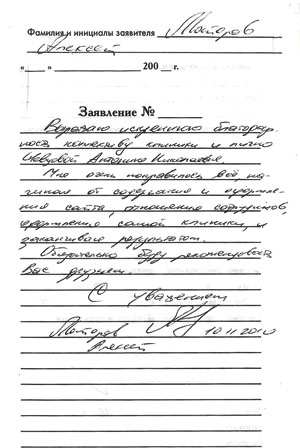 Фамилия и инициалы заявителя Моторов
Алексей
«___» ____________ 200__ г.
Заявление № _____
Выражаю искреннюю благодар-
ность коллективу клиники и лично
Антонине Николаевне.
Мне очень понравилось всё на-
чиная от содержания и оформле-
ния сайта, отношения сотрудников,
оформлению самой клиники, и
заканчивая результатом.
Обязательно буду рекомендовать
Вас друзьям.
С уважением
Моторов 10.11.2010
Алексей